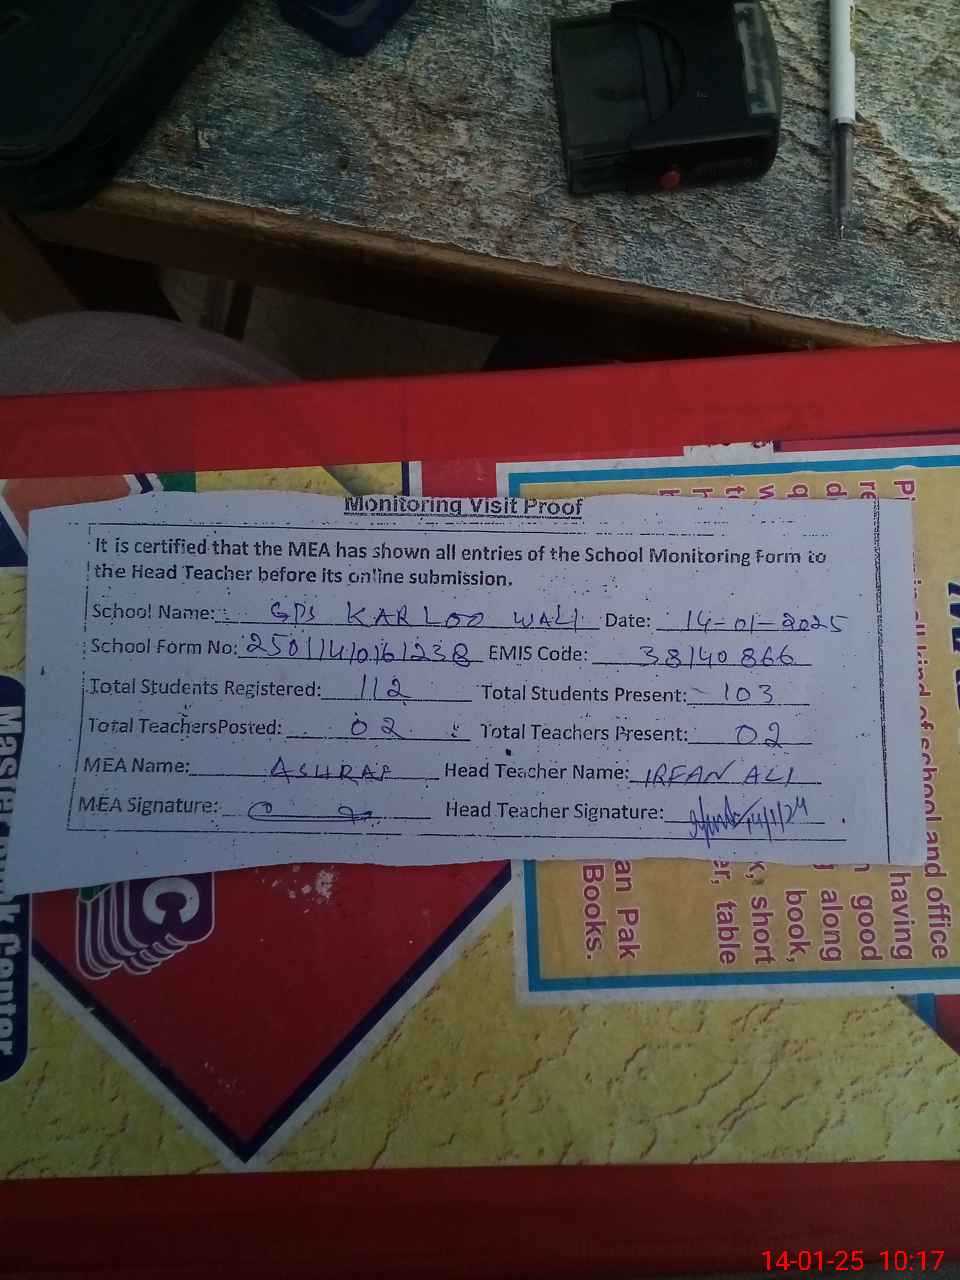 Monitoring Visit Proof
It is certified that the MEA has shown all entries of the School Monitoring Form to
the Head Teacher before its online submission.
School Name: GPS KARLOO WALI Date: 14-01-2025
School Form No: 25011410161238 EMIS Code: 38140866
Total Students Registered: 112 Total Students Present: 103
Total TeachersPosted: 02 Total Teachers Present: 02
MEA Name: ASHRAF Head Teacher Name: IRFAN ALI
MEA Signature: Head Teacher Signature: 14/1/24
kind of school and office
having
good
along
book,
short
table
an Pak
Books.
Center
14-01-25 10:17